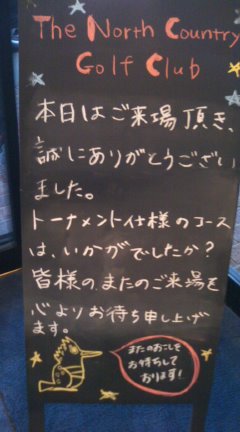 The North Country
Golf Club
本日はご来場頂き、
誠にありがとうござい
ました。
トーナメント仕様のコース
は、いかがでしたか?
皆様のまたのご来場を
心よりお待ち申し上げ
ます。
またのおこしを
お待ちして
おります!